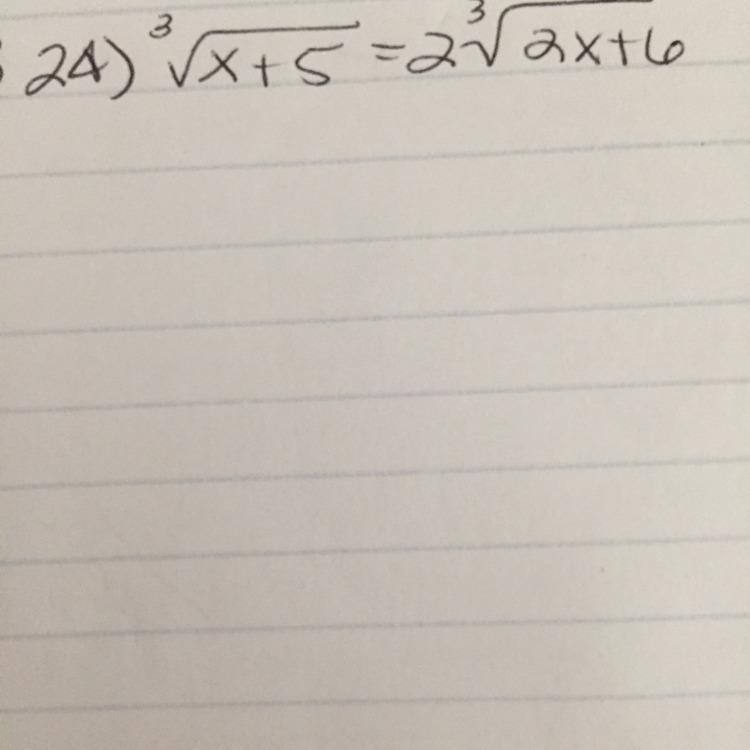 24) ∛(x+5) = 2∛(2x+6)